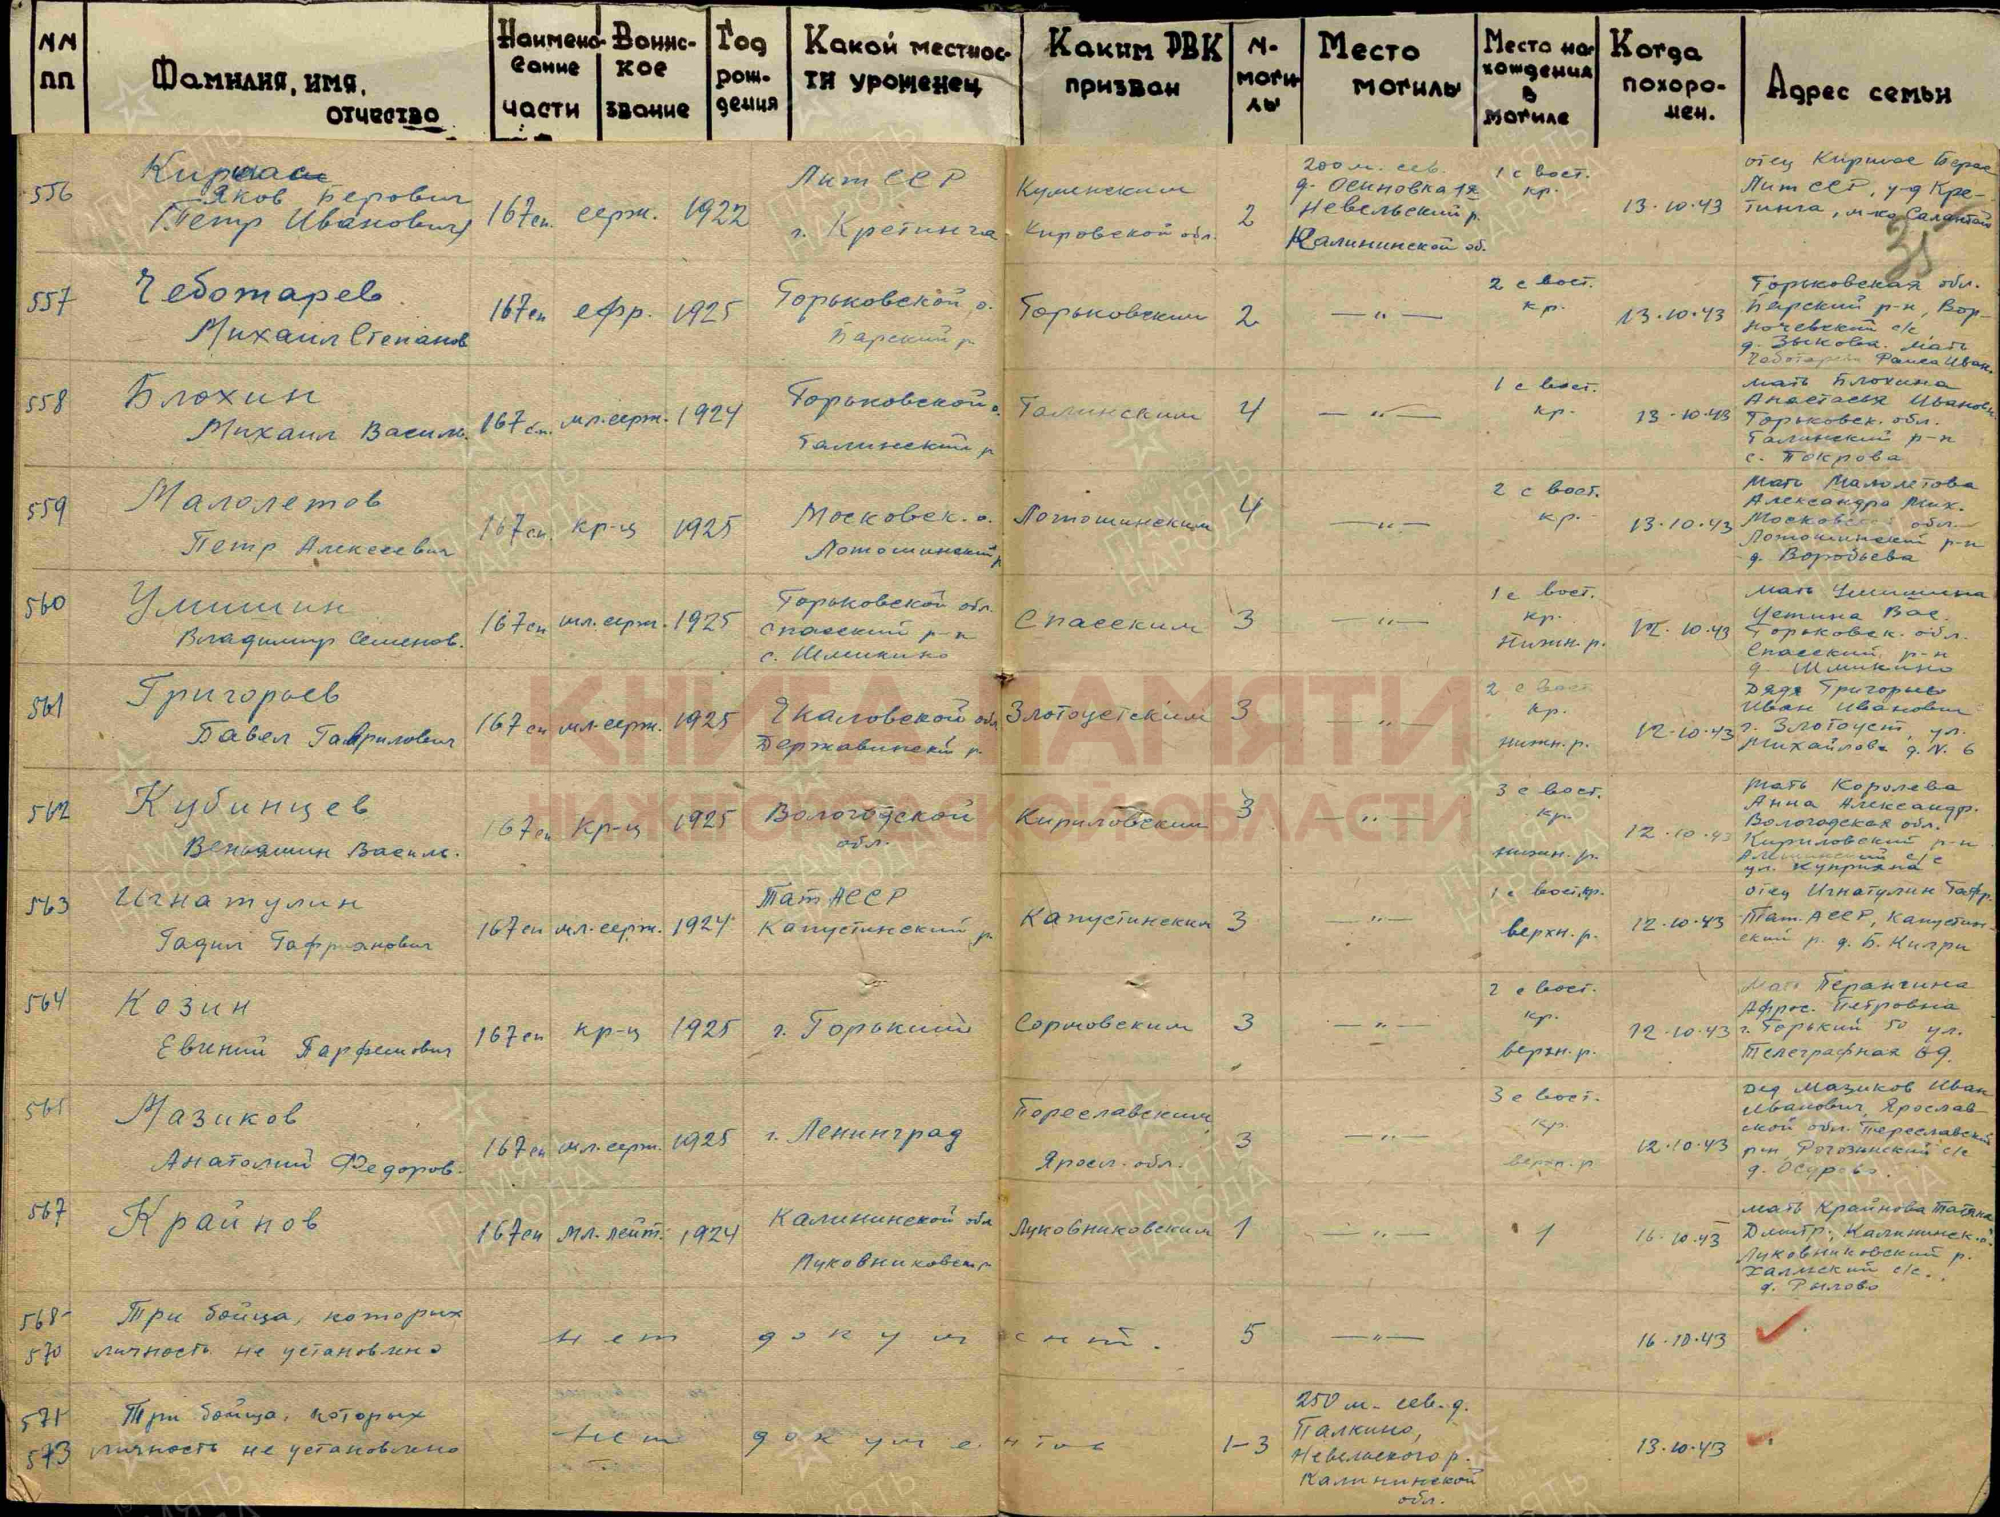 NN пп
Фамилия, имя, отчество
Наименование части
Воинское звание
Год рождения
Какой местности уроженец
Каким РВК призван
N- могилы
Место могилы
Место нахождения в могиле
Когда похоронен.
Адрес семьи
556
Кирмас
Яков Берович
(Петр Иванович)
167 сп.
серж.
1922
Лит ССР
г. Кретинга
Куменским
Кировской обл.
2
200 м. сев.
д. Осиновка 1я
Невельский р.
Калининской об.
1 с вост.
кр.
13.10.43
отец Кирмас Берас
Лит ССР, у-д Кре-
тинга, м-ко Салантай
35
557
Чеботарев
Михаил Степанов
167 сп
ефр.
1925
Горьковской о.
Барский р
Горьковским
2
— " —
2 с вост.
кр.
13.10.43
Горьковская обл.
Барский р-н, Вор-
ночевский с/с
д. Зыковка. Мать
Чеботарева Фаиса Иван.
558
Блохин
Михаил Василь.
167 сп.
мл. серж.
1924
Горьковской о.
Галинский р
Галинским
4
— " —
1 с вост.
кр.
13.10.43
мать Блохина
Анастасья Ивановн.
Горьковск. обл.
Галинский р-н
с. Покрова
559
Малолетов
Петр Алексеевич
167 сп.
кр-ц
1925
Московск. о.
Лотошинский р
Лотошинским
4
— " —
2 с вост.
кр.
13.10.43
Мать Малолетова
Александра Мих.
Московск обл.
Лотошинский р-н
д. Воробьева
560
Умишин
Владимир Семенов.
167 сп
мл. серж.
1925
Горьковской обл.
Спасский р-н
с. Шмикино
Спасским
3
— " —
1 с вост.
кр.
Нижн. р.
12.10.43
мать Умишина
Устина Вас.
Горьковск. обл.
Спасский р-н
д. Шмикино
561
Григорьев
Павел Гаврилович
167 сп
мл. серж.
1925
Чкаловской обл
Державинский р.
Златоустским
3
— " —
2 с вост
кр.
нижн. р.
12.10.43
Дядя Григорьев
Иван Иванович
г. Златоуст, ул.
Михайлова д. N. 6
КНИГА ПАМЯТИ
НИЖЕГОРОДСКОЙ ОБЛАСТИ
562
Кубинцев
Веньямин Василь.
167 сп
кр-ц
1925
Вологодской
обл.
Кириловским
3
— " —
3 с вост.
кр.
нижн. р.
12.10.43
мать Королева
Анна Александр.
Вологодская обл.
Кирилловский р-н
с/с
563
Игнатулин
Гадил Гафриянович
167 сп
мл. серж.
1924
Тат АССР
Капустинский р.
Капустинским
3
— " —
1 с вост. кр.
верхн. р.
12.10.43
отец Игнатулин Гафр.
Тат. АССР, Капустин-
ский р. д. Б. Кигри
564
Козин
Евгений Парфемович
167 сп
кр-ц
1925
г. Горький
Сормовским
3
— " —
2 с вост.
кр.
верхн. р.
12.10.43
Мать Перангина
Афрос. Петровна
г. Горький 50 ул.
Телеграфная
565
Мазиков
Анатолий Федоров.
167 сп
мл. серж.
1925
г. Ленинград
Переславским
Яросл. обл.
3
— " —
3 с вост.
кр.
верхн. р
12.10.43
Дед Мазиков Иван
Иванович, Ярослав-
ской обл. Переславский
р-н, Рогозинский с/с
д. Осурово.
567
Крайнов
167 сп
мл. лейт.
1924
Калининской обл
Луковниковск р
Луковниковским
1
— " —
1
16.10.43
мать Крайнова Татьяна
Дмитр., Калининск. о.
Луковниковский р.
Халмский с/с.,
д. Рылово
568-
570
Три бойца, которых
личность не установлено
нет документ.
5
— " —
16.10.43
571-
573
Три бойца, которых
личность не установлено
нет документов
1-3
250 м. сев. д.
Палкино,
Невельского р.
Калининской
обл.
13.10.43